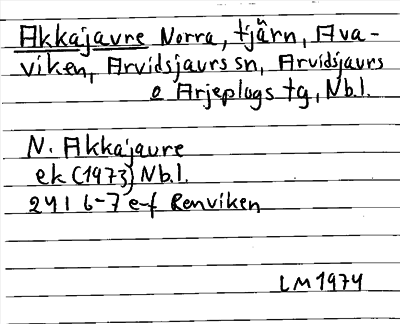 Akkajavre Norra, tjärn, Ava-
viken, Arvidsjaurs sn, Arvidsjaurs
o Arjeplogs tg, Nb.l.
N. Akkajaure
ek (1973) Nb.l.
24I 6-7 e-f Renviken
LM 1974